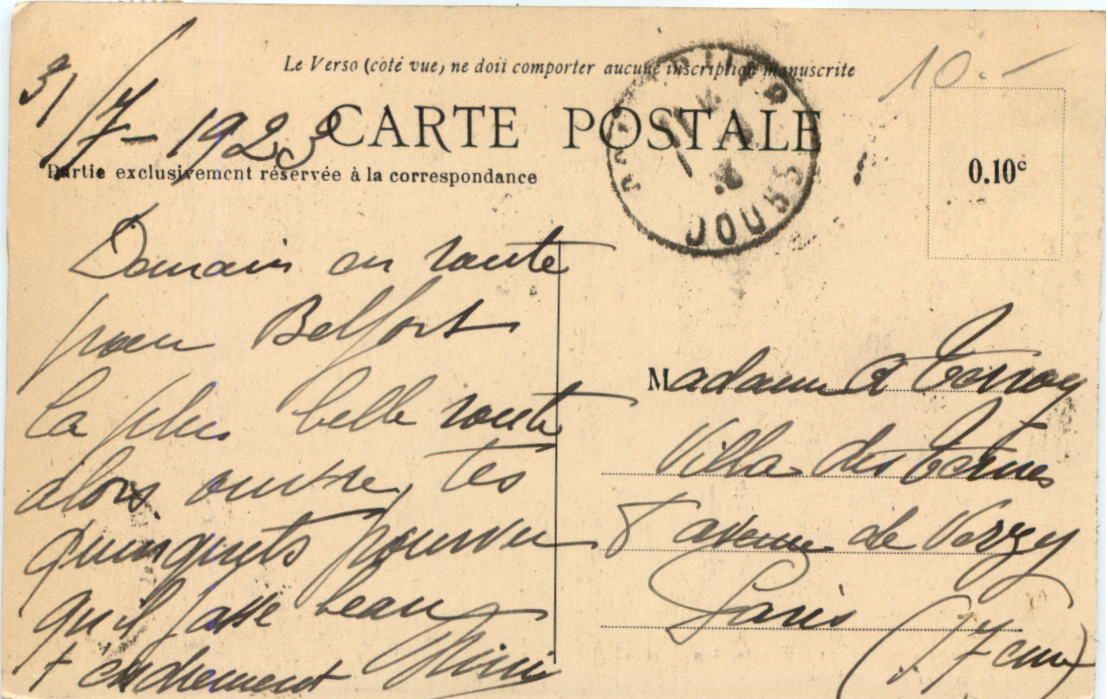 Le Verso (côté vue) ne doit comporter aucune inscription manuscrite
10.-
31/7-1923
CARTE POSTALE
Partie exclusivement réservée à la correspondance
0.10c
DOUBS
Demain en route
pour Belfort
la plus belle route
alors ouvre tes
quinquets pourvu
qu'il fasse beau
tendrement Mimi
Madame A Terroy
Villa des Ternes
8 avenue de Verzy
Paris (17eme)